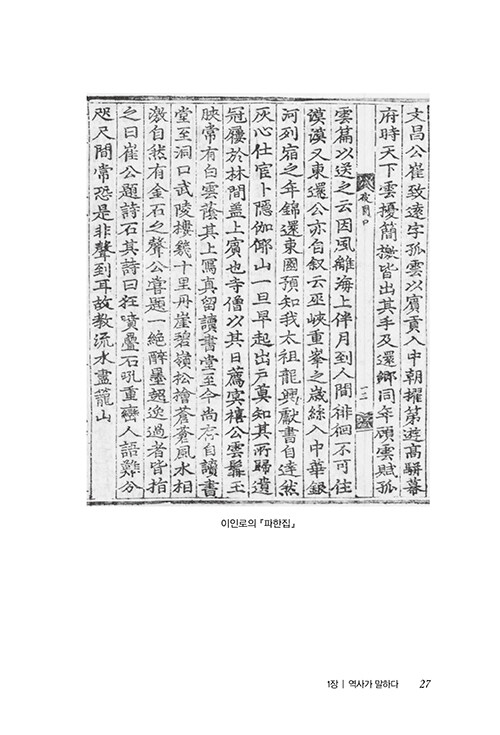 文昌公崔致遠字孤雲以賓貢入中朝擢第遊高駢幕
府時天下雲擾簡檄皆出其手及還鄉同年顧雲賦孤
雲篇以送之云因風離海上伴月到人間徘徊不可住
漠漠又東還公亦自叙云巫峽重峯之歲絲入中華銀
河列宿之年錦還東國預知我太祖龍興獻書自達然
灰心仕官卜隱伽倻山一旦早起出戶莫知其所歸遺
冠屨於林間盖上賓也寺僧以其日薦冥禧公雲髯玉
脥常有白雲蔭其上寫真留讀書堂至今尚存自讀書
堂至洞口武陵樓幾十里丹崖碧嶺松檜蒼蒼風水相
激自然有金石之聲公嘗題一絶醉墨超逸過者皆指
之曰崔公題詩石其詩曰狂噴疊石吼重巒人語難分
咫尺間常恐是非聲到耳故教流水盡籠山
이인로의 『파한집』
1장 | 역사가 말하다 27